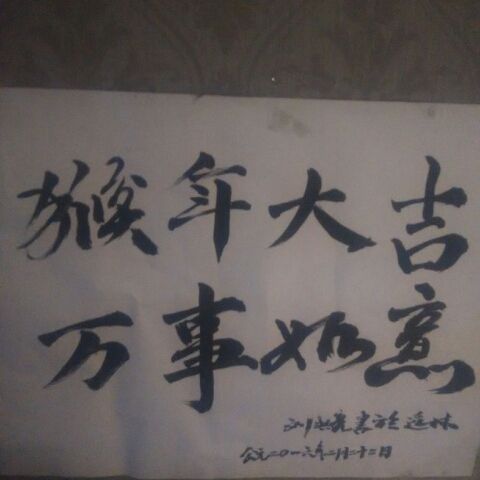 猴年大吉
万事如意
书于
公元二〇一六年二月二十二日